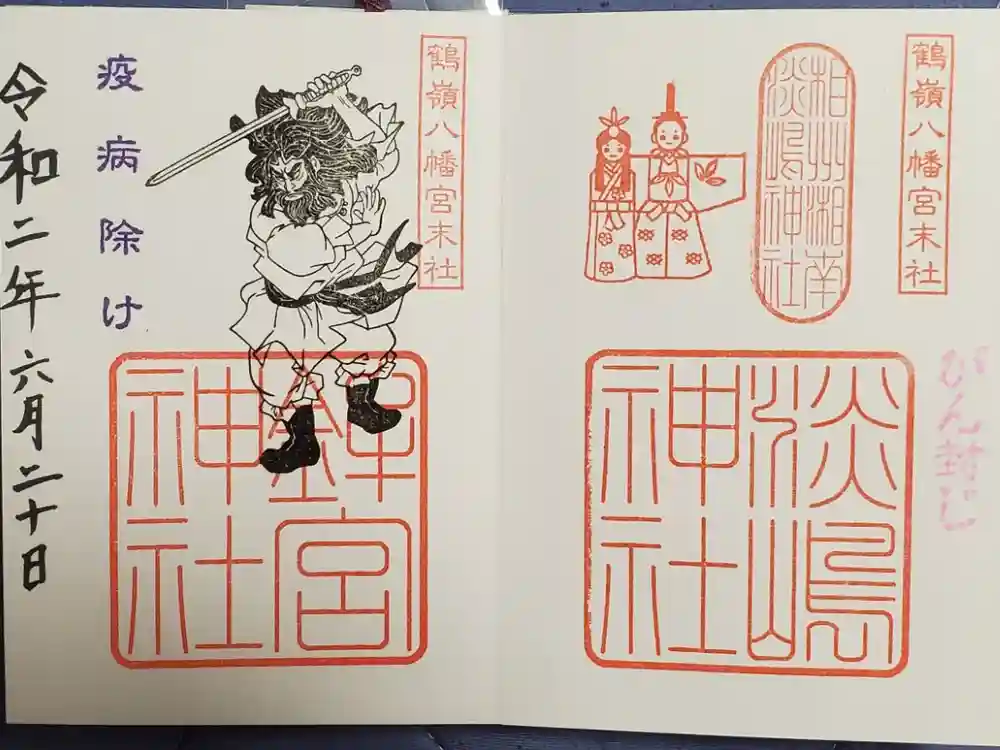 鶴嶺八幡宮末社
がん封じ
相州湘南
淡嶋神社
淡嶋
神社
鶴嶺八幡宮末社
宮
神社
疫病除け
令和二年六月二十日